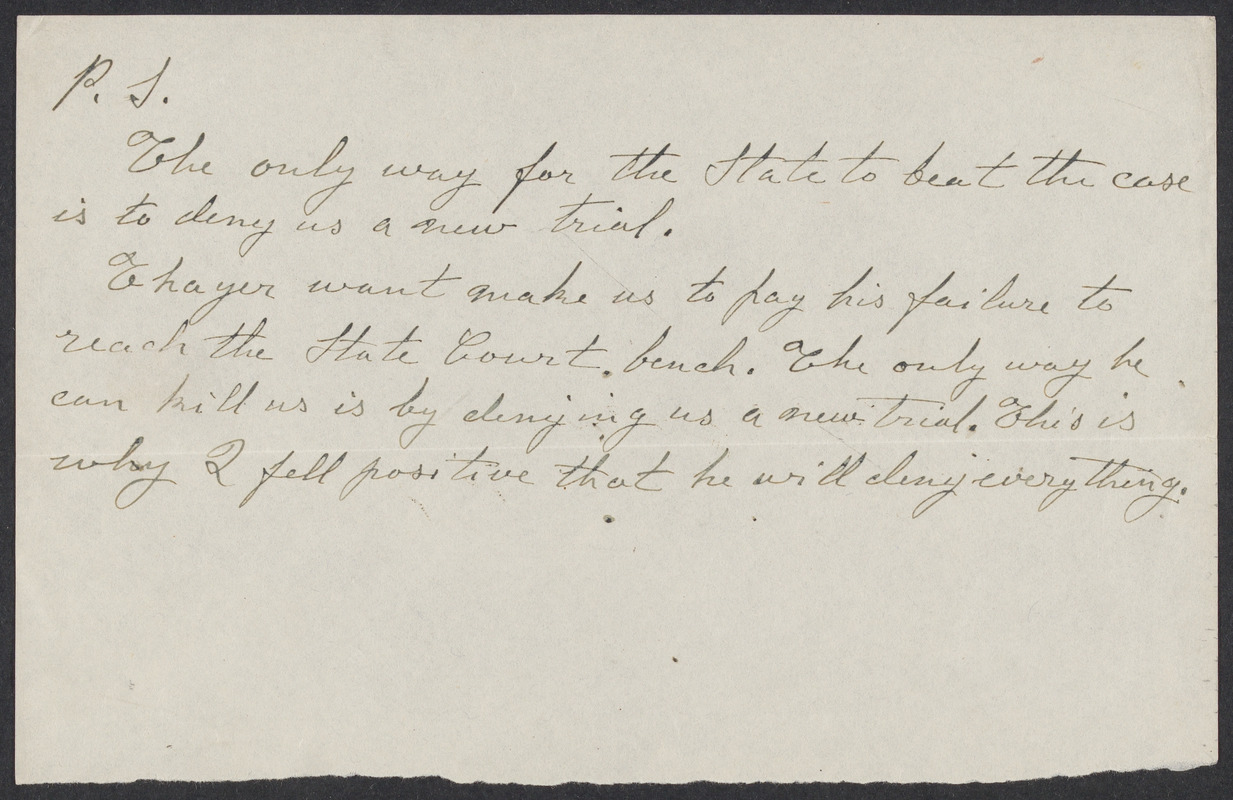 P. S.
The only way for the State to beat the case
is to deny us a new trial.
Thayer want make us to pay his failure to
reach the State Court bench. The only way he
can kill us is by denying us a new trial. This is
why I fell positive that he will deny everything.